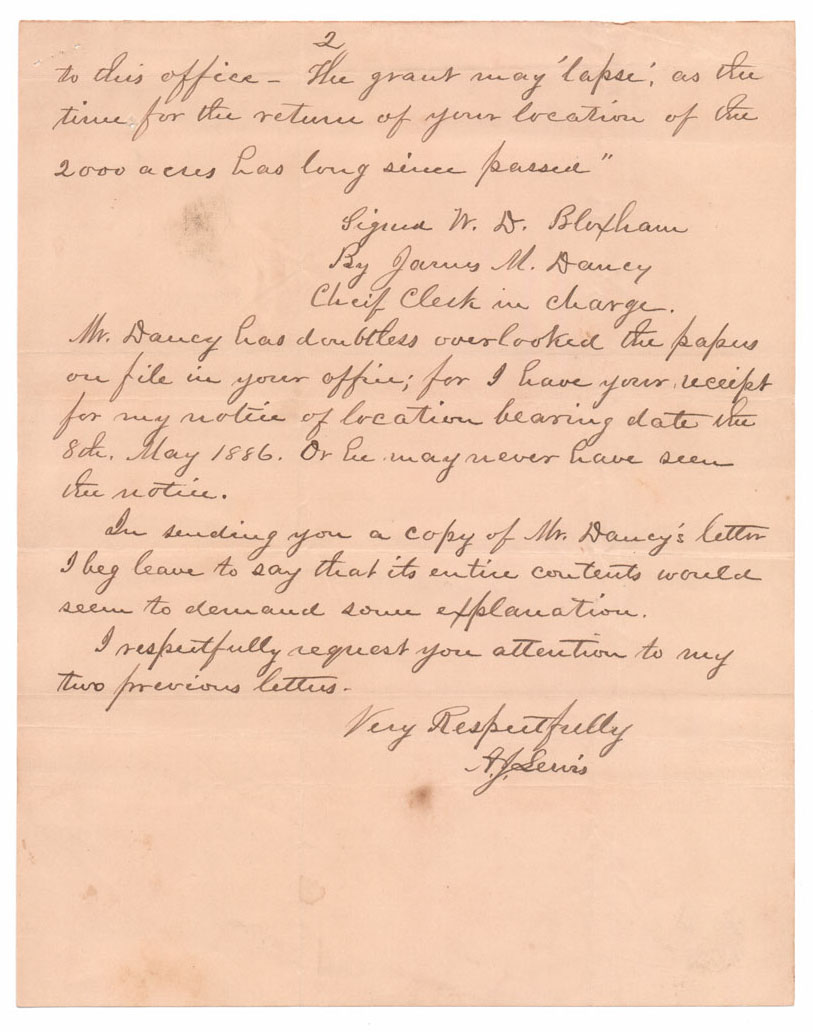 2
to this office - The grant may 'lapse', as the
time for the return of your location of the
2000 acres has long since passed"
Signed W. D. Bloxham
By James M. Dancy
Cheif Clerk in charge.
Mr. Dancy has doubtless overlooked the papers
on file in your office; for I have your receipt
for my notice of location bearing date the
8th. May 1886. Or he may never have seen
the notice.
In sending you a copy of Mr. Dancy's letter
I beg leave to say that its entire contents would
seem to demand some explanation.
I respectfully request you attention to my
two previous letters.
Very Respectfully
A.J. Lewis